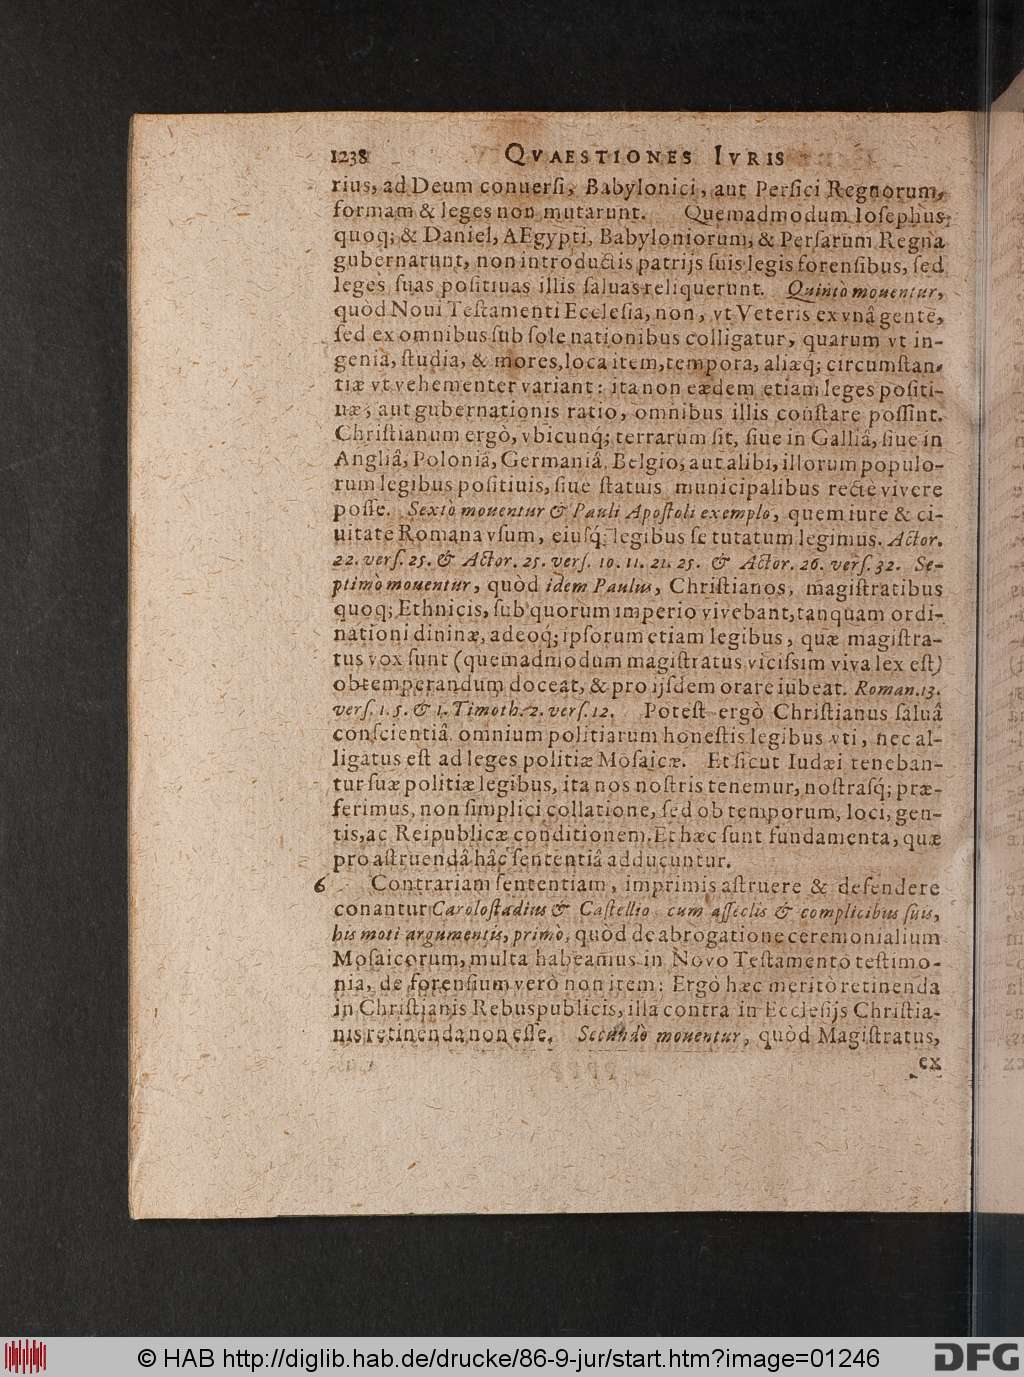 1238 QVAESTIONES IVRIS
rius, ad Deum conuerſi, Babylonici, aut Perſici Regnorum,
formam & leges non mutarunt. Quemadmodum Ioſephus,
quoq; & Daniel, AEgypti, Babyloniorum, & Perſarum Regna
gubernarunt, non introductis patrijs ſuis legis forenſibus, ſed
leges ſuas poſitiuas illis ſaluas reliquerunt. Quintò mouentur,
quòd Noui Teſtamenti Eccleſia, non, vt Veteris ex vnâ gente,
ſed ex omnibus ſub ſole nationibus colligatur, quarum vt in-
genia, ſtudia, & mores, loca item, tempora, aliæq; circumſtan-
tiæ vt vehementer variant: ita non eædem etiam leges poſiti-
uæ, aut gubernationis ratio, omnibus illis conſtare poſſint.
Chriſtianum ergò, vbicunq́; terrarum ſit, ſiue in Galliâ, ſiue in
Angliâ, Poloniâ, Germaniâ, Belgio, aut alibi, illorum populo-
rum legibus poſitiuis, ſiue ſtatuis municipalibus rectè vivere
poſſe. Sextò mouentur & Pauli Apoſtoli exemplo, quem iure & ci-
uitate Romana vſum, eiuſq́; legibus ſe tutatum legimus. Actor.
22. verſ. 25. & Actor. 25. verſ. 10. 11. 21. 25. & Actor. 26. verſ. 32. Se-
ptimò mouentur, quòd idem Paulus, Chriſtianos, magiſtratibus
quoq; Ethnicis, ſub quorum imperio vivebant, tanquam ordi-
nationi dininæ, adeoq́; ipſorum etiam legibus, quæ magiſtra-
tus vox ſunt (quemadmodum magiſtratus viciſsim viva lex eſt)
obtemperandum doceat, & pro ijſdem orare iubeat. Roman. 13.
verſ. 1. 5. & 1. Timoth. 2. verſ. 12. Poteſt ergò Chriſtianus ſaluâ
conſcientiâ omnium politiarum honeſtis legibus vti, nec al-
ligatus eſt ad leges politiæ Moſaicæ. Et ſicut Iudæi teneban-
tur ſuæ politiæ legibus, ita nos noſtris tenemur, noſtraſq́; præ-
ferimus, non ſimplici collatione, ſed ob temporum, loci, gen-
tis, ac Reipublicæ conditionem. Et hæc ſunt fundamenta, quæ
pro aſtruendâ hâc ſententiâ adducuntur.
6 Contrariam ſententiam, imprimis aſtruere & defendere
conantur Caroloſtadius & Caſtellio cum aſſeclis & complicibus ſuis,
his moti argumentis, primò, quòd de abrogatione ceremonialium
Moſaicorum, multa habeamus in Novo Teſtamento teſtimo-
nia, de forenſium verò non item: Ergò hæc meritò retinenda
in Chriſtianis Rebuspublicis, illa contra in Eccleſijs Chriſtia-
nis retinenda non eſſe. Secundò mouentur, quòd Magiſtratus,
ex
© HAB http://diglib.hab.de/drucke/86-9-jur/start.htm?image=01246
DFG